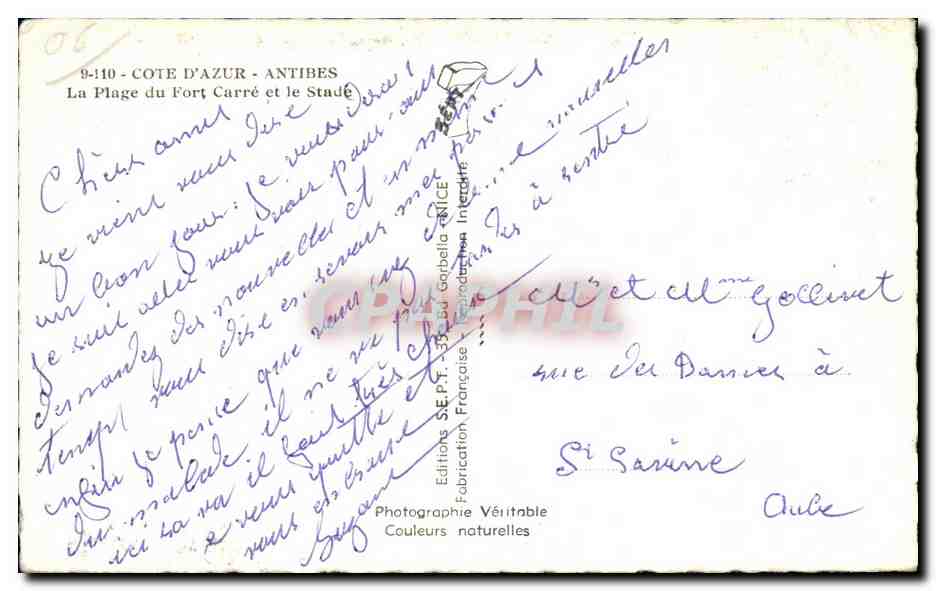 06
9-110 - COTE D'AZUR - ANTIBES
La Plage du Fort Carré et le Stade
Chers amis
je vient vous dire
un bon jour: je vous dirai
je suis aller vous voir pour avoir
demandez des nouvelles et en même
temps vous dire en serais mes
je pense que vous irez de nouvelles
du malade il ne va plus à
ici sa va il fait très chaud
je vous quitte et
vous embrasse
Suzanne
SEPT
Editions S.E.P.T. - 35, Bd Gorbella - NICE
Fabrication Française - Reproduction Interdite
Photographie Véritable
Couleurs naturelles
CPAPHIL
Mr et Mme Gollinet
rue des Dames à
St Savine
Aube